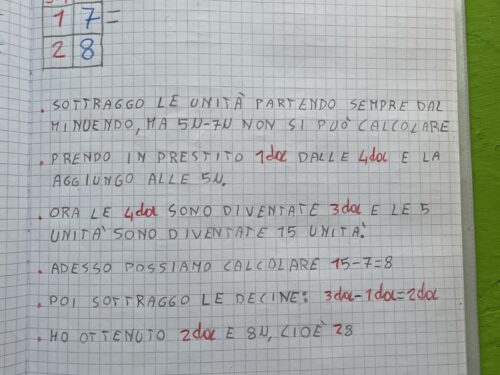 1 7 =
2 8
. SOTTRAGGO LE UNITÀ PARTENDO SEMPRE DAL
MINUENDO, MA 5u-7u NON SI PUÒ CALCOLARE
. PRENDO IN PRESTITO 1da DALLE 4da E LA
AGGIUNGO ALLE 5u.
. ORA LE 4da SONO DIVENTATE 3da E LE 5
UNITÀ SONO DIVENTATE 15 UNITÀ.
. ADESSO POSSIAMO CALCOLARE 15-7=8
. POI SOTTRAGGO LE DECINE: 3da-1da=2da
. HO OTTENUTO 2da E 8u, CIOÈ 28